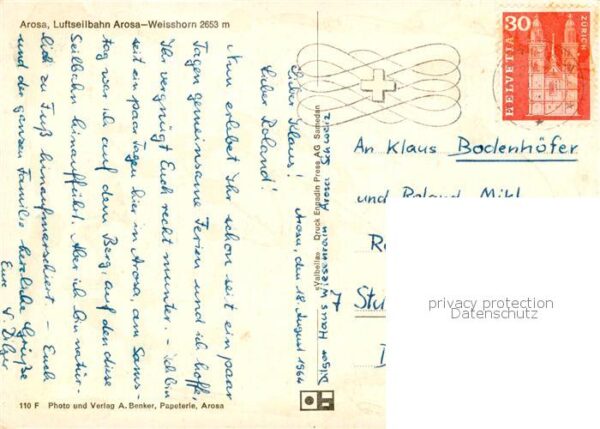 Arosa, Luftseilbahn Arosa—Weisshorn 2653 m
Arosa, den 18. August 1964
Lieber Klaus!
Lieber Roland!
Nun erlebet Ihr schon seit ein paar
Tagen gemeinsame Ferien und ich hoffe,
Ihr vergnügt Euch recht munter. – Ich bin
seit ein paar Tagen hier in Arosa, am Sams-
tag war ich auf dem Berg, auf den diese
Seilbahn hinaufführt. Aber ich bin natür-
lich zu Fuß hinaufmarschiert. – Euch
und der ganzen Familie herzliche Grüße
Eure
V. Dilger
Dilger Haus Wiesenrain Arosa Schweiz
«Valbella» Druck Engadin Press AG Samedan
110 F Photo und Verlag A. Benker, Papeterie, Arosa
30
HELVETIA
ZÜRICH
An Klaus Bodenhöfer
und Roland Mikl
7 Stu
privacy protection
Datenschutz